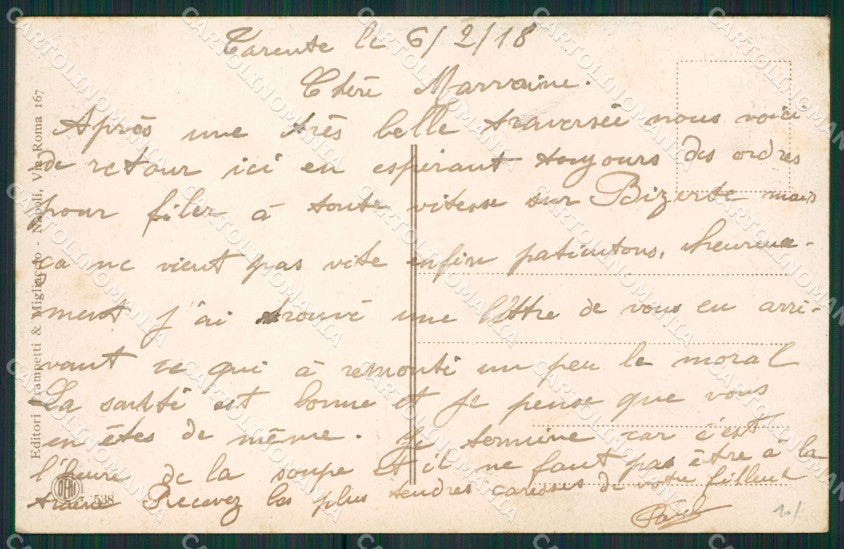 Tarente le 6/2/18
Chère Marraine.
Après une très belle traversée nous voici
de retour ici en espérant toujours des ordres
pour filer à toute vitesse sur Bizerte mais
ça ne vient pas vite enfin patientons, heureuse-
ment j'ai trouvé une lettre de vous en arri-
vant ce qui à remonti un peu le moral
La santé est bonne et je pense que vous
en êtes de même. Je termine car c'est
l'heure de la soupe et il ne faut pas être à la
traine Recevez les plus tendres caresses de votre filleul
Editori Trampetti & Migliaccio - Napoli, Via Roma 167
538
CARTOLINOMANIA